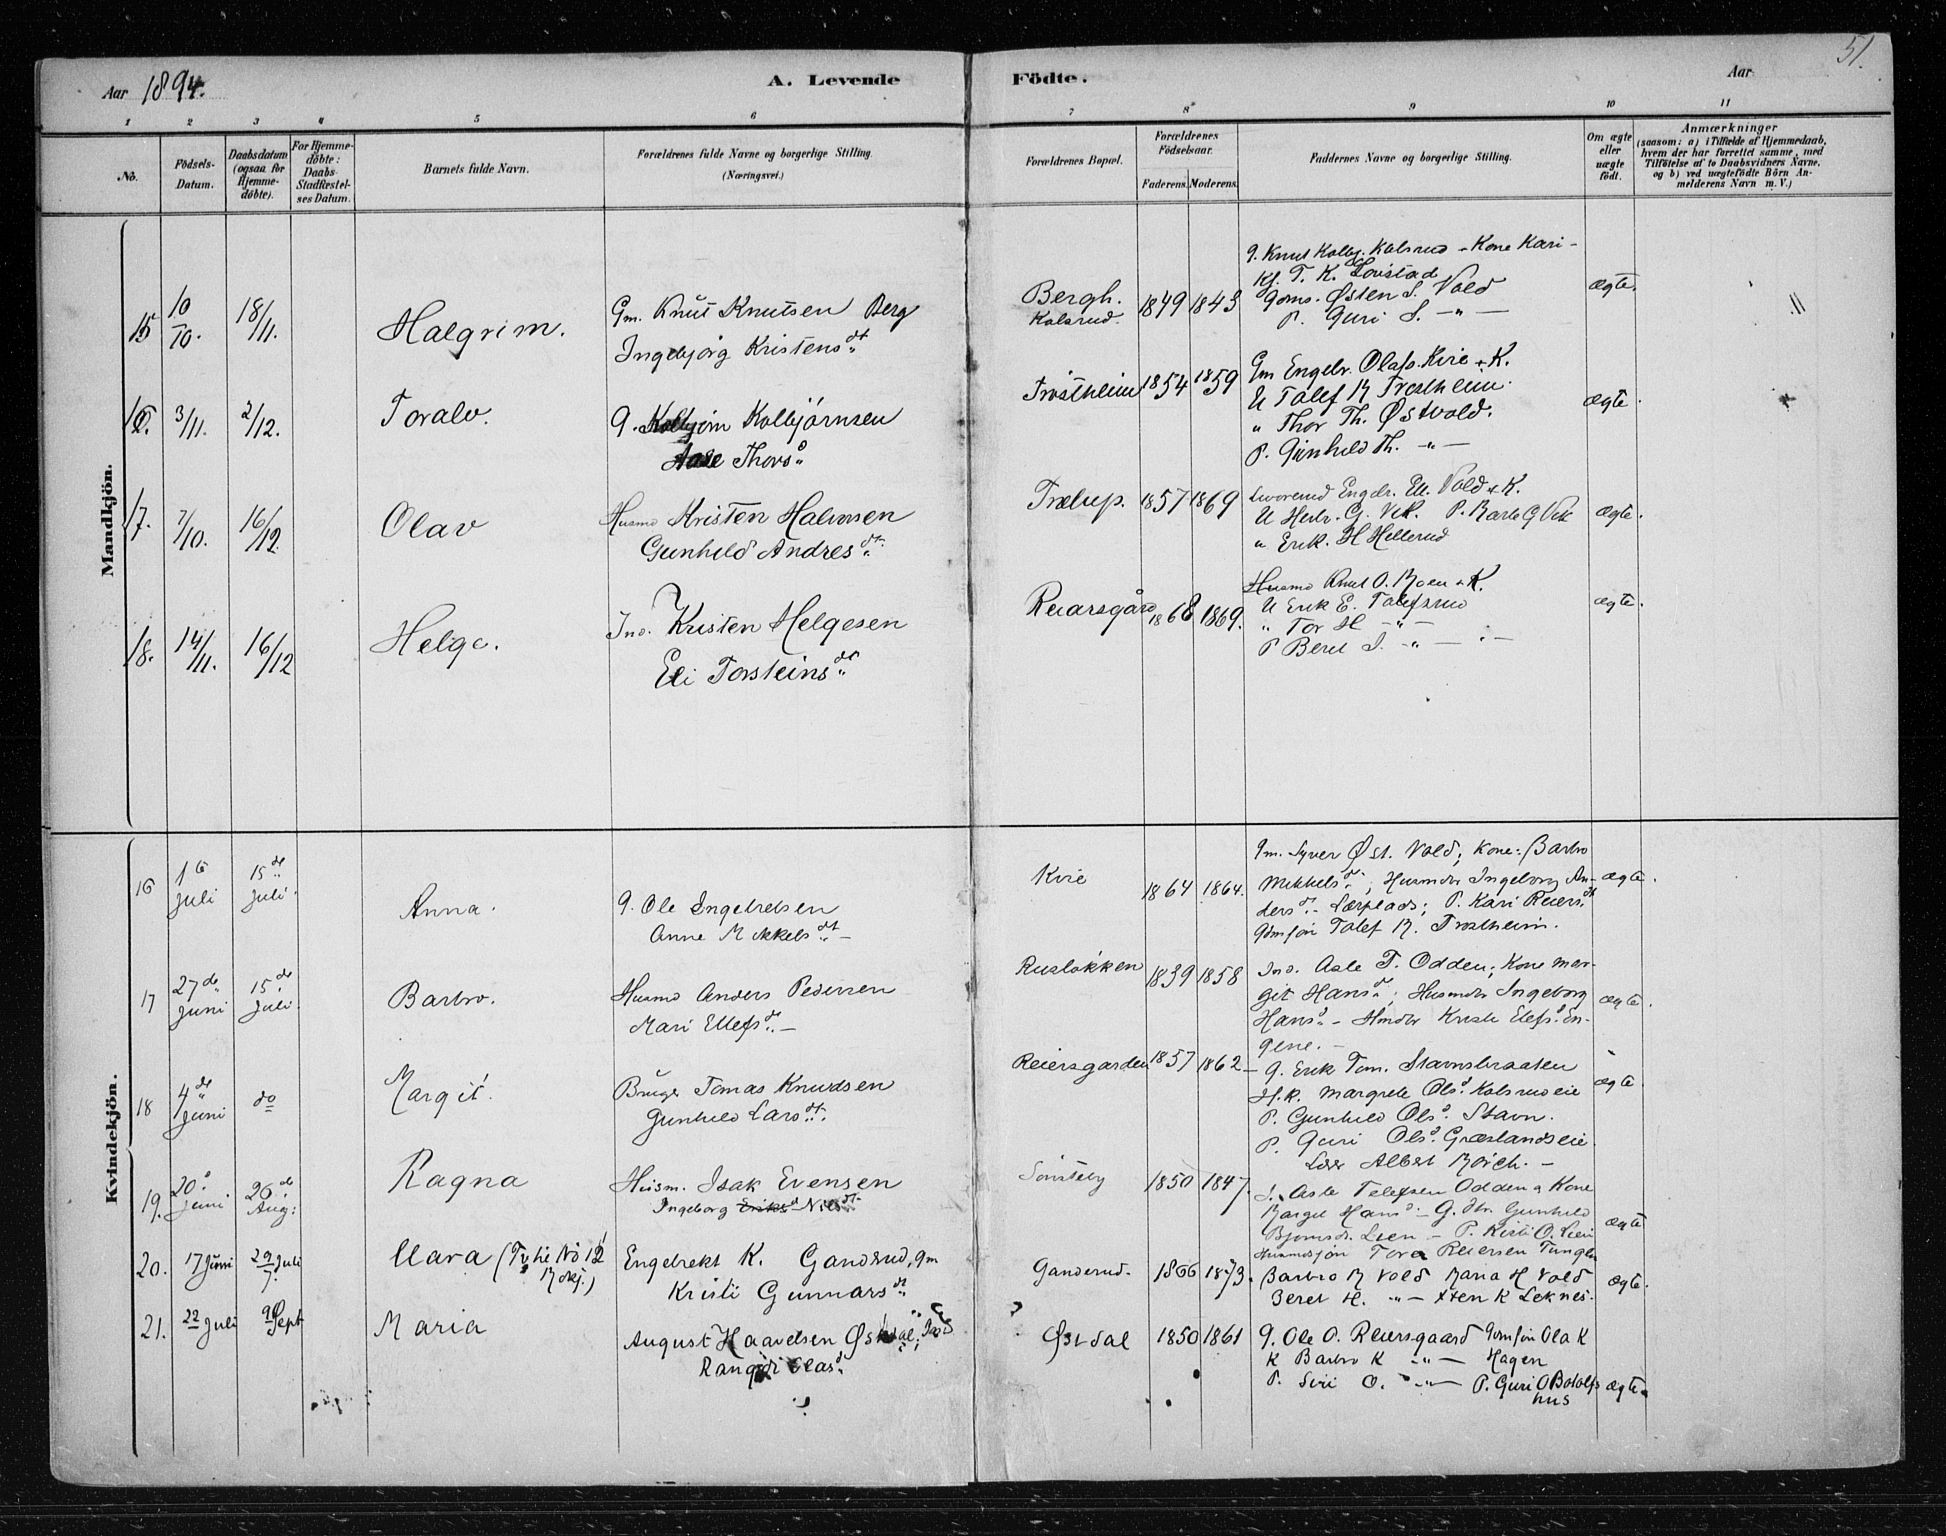 Aar 1894.
A. Levende
Födte.
Aar
51.
1 2 3 4 5 6 7 8 9 10 11
No.
Födsels-
Datum.
Daabsdatum
(ogsaa for
Hjemme-
döbte).
For Hjemme-
döbte:
Daabs-
Stadfæstel-
ses Datum.
Barnets fulde Navn.
Forældrenes fulde Navne og borgerlige Stilling.
(Næringsvei.)
Forældrenes Bopæl.
Forældrenes
Födselsaar.
Faderens. Moderens.
Faddernes Navne og borgerlige Stilling.
Om ægte
eller
uægte
födt.
Anmærkninger
(saasom: a) i Tilfælde af Hjemmedaab,
hvem der har forrettet samme, med
Tilföielse af to Daabsvidners Navne,
og b) ved uægtefödte Börn An-
melderens Navn m. V.)
Mandkjön.
15 10/10. 18/11. Halgrim.
Gm. Knut Knutsen Berg
Ingebjørg Kristensdt
Bergh.
Kolsrud.
1849 1843
G. Knut Kolbj. Kolsrud - Kone Kari -
Kf. T. K. Lovstad
Gdms. Østen S. Vold
P. Guri S. -"-
ægte.
16. 3/11. 2/12. Toralv.
G. Kolbjørn Kolbjørnsen
Aase Thorsd
Trostheim 1854 1859
Gm Engebr. Olafs. Kvie + K.
U Tolef R Trostheim.
" Thor Th. Østvold.
P. Gunhild Th. -"-
ægte.
17. 7/10. 16/12. Olav
Husmd Kristen Halvorsen
Gunhild Andresdt.
Trælup. 1857 1869
Engebr. Ell. Vold + K.
U Herbr. G. Vik. P. Barbo G Vik
" Erik. H Hellerud
ægte.
18. 14/11. 16/12 Helge.
Ind. Kristen Helgesen
Eli Torsteinsdt
Reiarsgård 1868 1869.
Husmd Knut O. Moen + K.
U Erik E. Tolefsrud
" Tor H -"-
P Beret S. -"-
ægte.
Kvindekjön.
16 16 juli 15de juli. Anna.
G. Ole Engebretsen
Anne Mikkelsdt -
Kvie 1864 1864.
Gm. Syver Øst. Vold; Kone: Barbro
Mikkelsd.; Husmdtr Ingeborg An-
dersd. - Lærplads; P. Kari Reiersdt
Gdmsøn Tolef R. Trostheim.
ægte.
17 27de juni 15de juli. Barbro.
Husmd Anders Pedersen
Mari Ellefsdt. -
Rusløkken 1839 1858
Ind. Asle T. Odden; Kone Mar-
git Hansd.; Husmdtr Ingeborg
Hansd. - Hmdtr Kristi Elefsd. En-
gene. -
ægte.
18 4de Juni do Margit.
Bruger Tomas Knudsen
Gunhild Larsdt.
Reiersgarden 1857 1862
G. Erik Tom. Stavnsbraaten
H.k. Margrete Olsd. Kolsrudeie
P. Gunhild Olsd. Stavn.
P. Guri Olsd. Græslandseie
Lær Albert Børch. -
ægte
19. 20d Juni 26de Aug: Ragna
Husm. Isak Evensen
Ingeborg Eriksd Nilsdt.
Sønsteby 1850 1847.
I. Asle Tolefsen Odden & Kone
Margit Hansd. - G. dtr. Gunhild
Bjørnsd. Lien - P. Kirsti O. Lien
Husmdsøn Tore Reiersen Tungen
ægte
20. 17 Juni 29/7. Juli Mara (Tv. til No 12
Mkj.)
Engebrekt K. Gandrud, Gm
Kristi Gunnarsdt
Ganderud. 1866 1873.
Barbro R Vold Maria H Vold
Beret H. -"- Sten K Leknes.
ægte.
21. 22 Juli 9 Sept Maria
August Haavelsen Østdal; Ind
Rangdi Olasd.
Østdal 1850 1861
G. Ole O. Reiersgaard Gdmsøn Ola K
K Barbro K -"- Hagen
P. Siri O. -"- P. Guri O Botolfs
hus
ægte